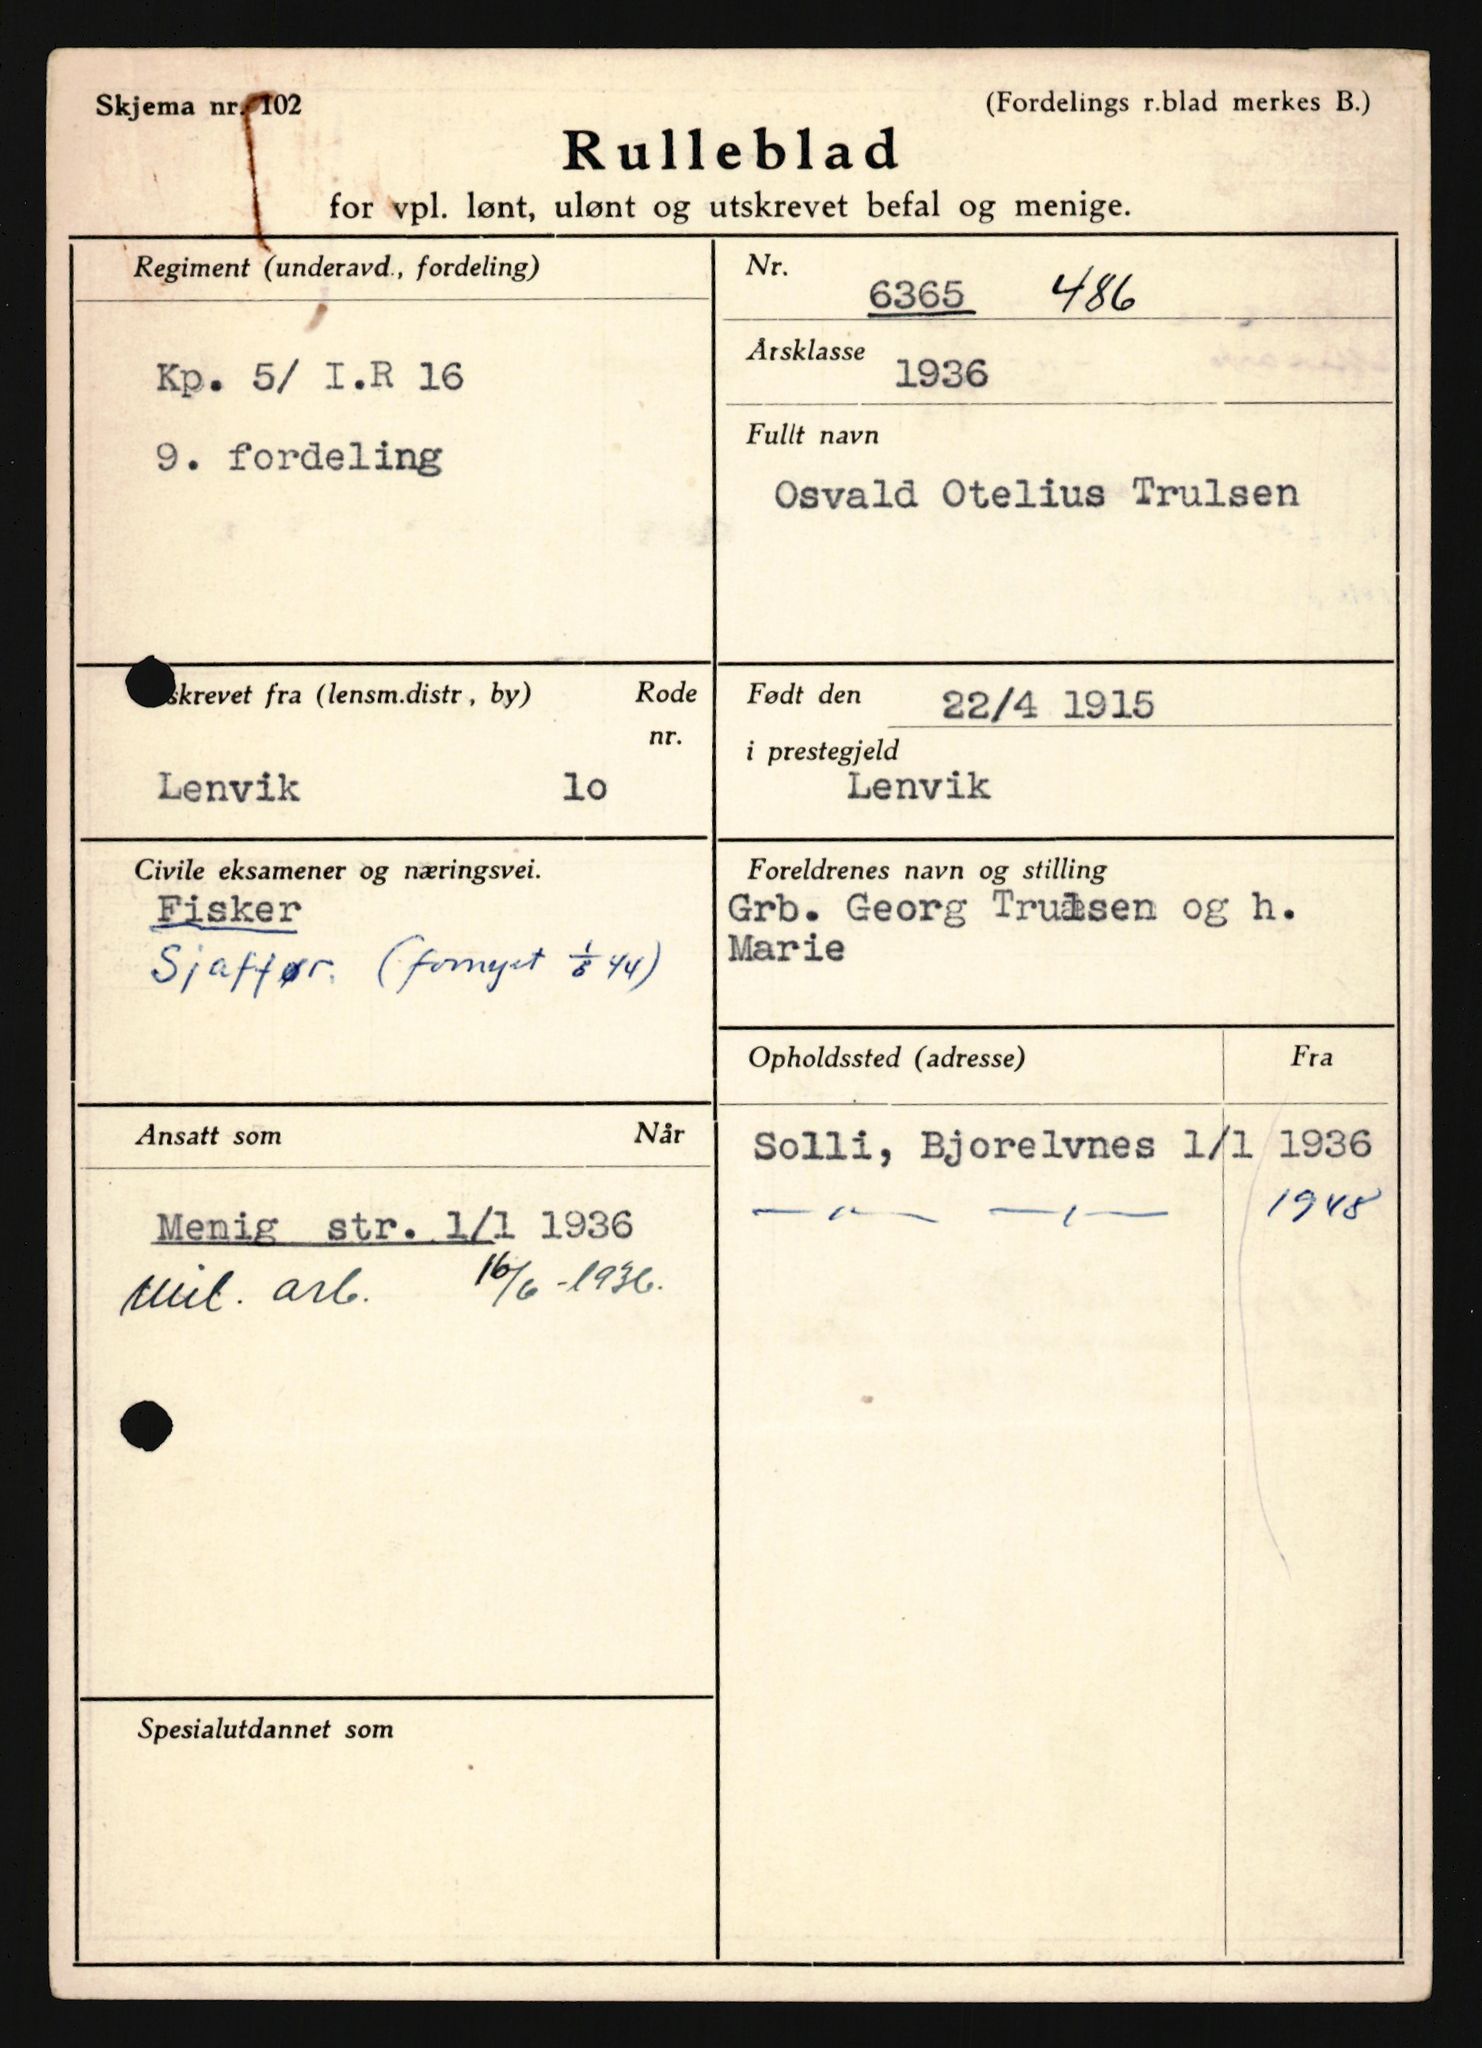 Skjema nr. 102
(Fordelings r.blad merkes B.)
Rulleblad
for vpl. lønt, ulønt og utskrevet befal og menige.
Regiment (underavd., fordeling)
Kp. 5/ I.R 16
9. fordeling
Nr.
6365 486
Årsklasse
1936
Fullt navn
Osvald Otelius Trulsen
skrevet fra (lensm.distr, by) Rode
nr.
Lenvik 10
Født den 22/4 1915
i prestegjeld
Lenvik
Civile eksamener og næringsvei.
Fisker
Sjaffør. (fornyet 1/8 44)
Foreldrenes navn og stilling
Grb. Georg Trulsen og h.
Marie
Ansatt som Når
Menig str. 1/1 1936
Mil. arb. 16/6 -1936.
Opholdssted (adresse) Fra
Solli, Bjorelvnes 1/1 1936
—"— —"— 1948
Spesialutdannet som